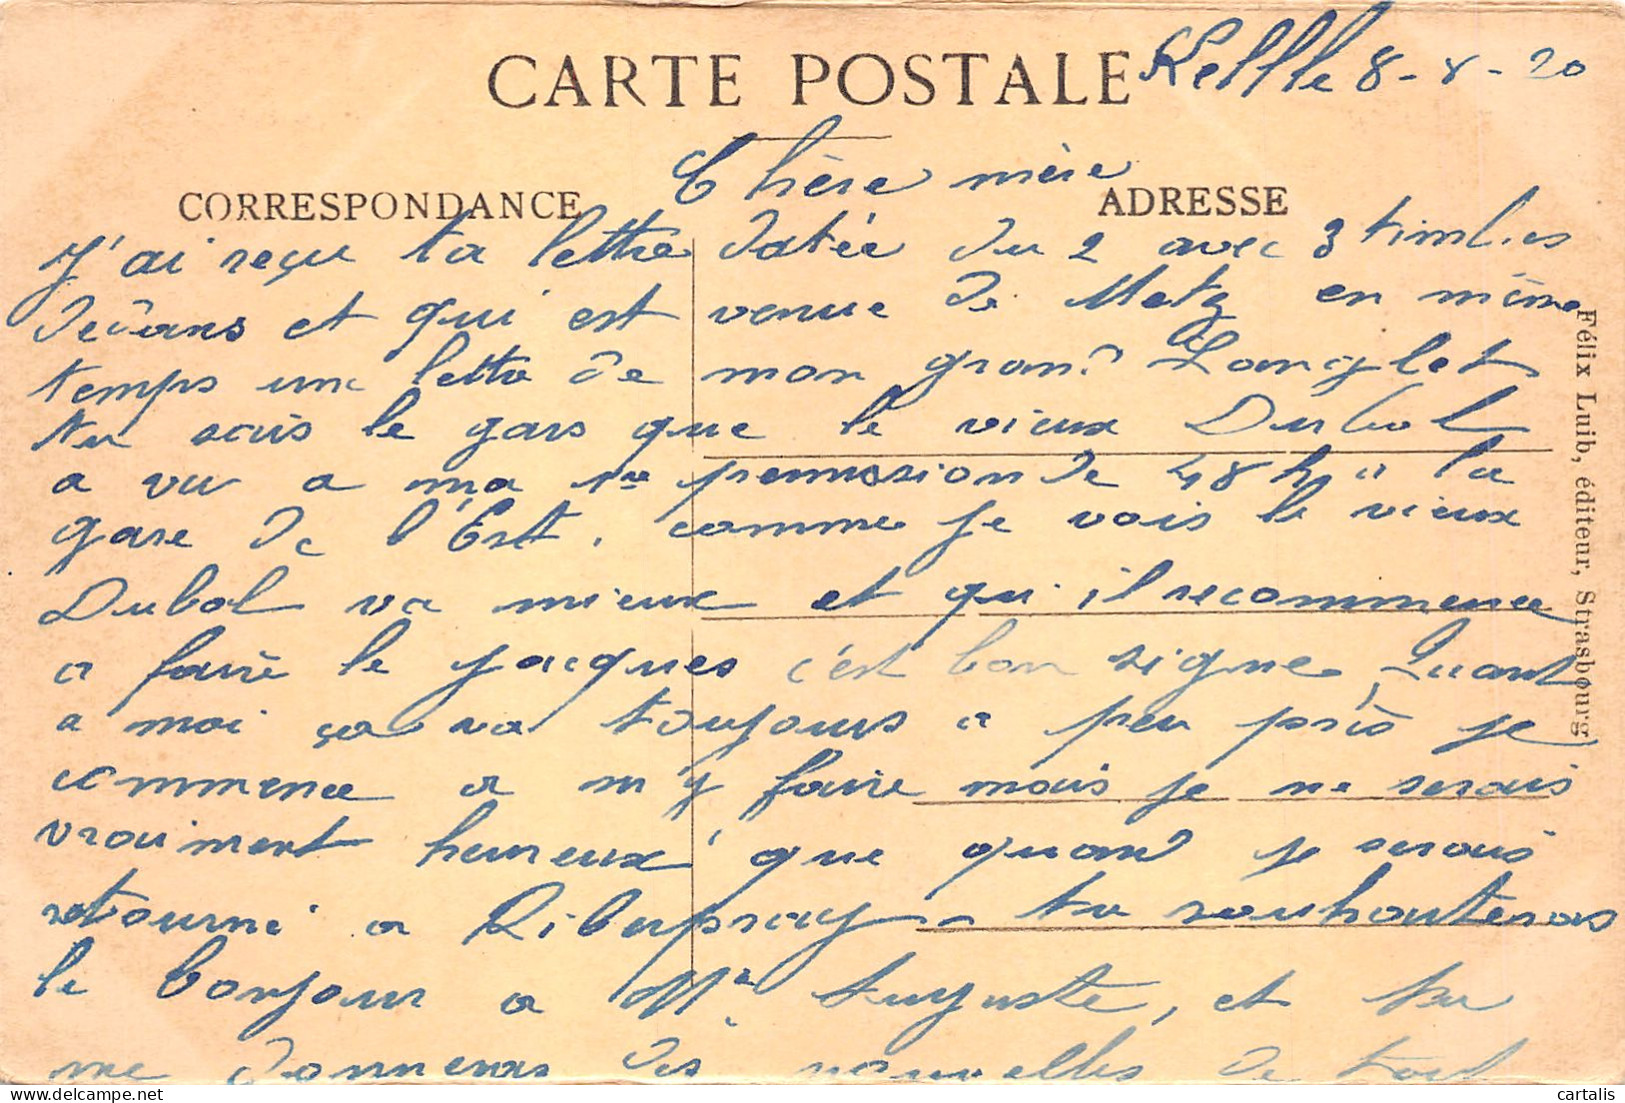 CARTE POSTALE
8-8-20
Chère mère
CORRESPONDANCE
ADRESSE
J'ai reçu ta lettre datée du 2 avec 3 timbres
dedans et qui est venue de Metz en même
temps une lettre de mon grand Langlet
tu sais le gars que le vieux Dubol
a vu a ma 1re permission de 48 h a la
gare de l'Est. comme je vois le vieux
Dubol va mieux et qui il recommence
a faire le jacques c'est bon signe, Quant
a moi ça va toujours a peu près je
commence a m'y faire mais je ne serais
vraiment heureux que quand je serais
retourné a Riberpray tu souhauteras
le bonjour a Mr Auguste, et tu
me donneras des nouvelles de tout
Félix Luib, éditeur, Strasbourg
cartalis